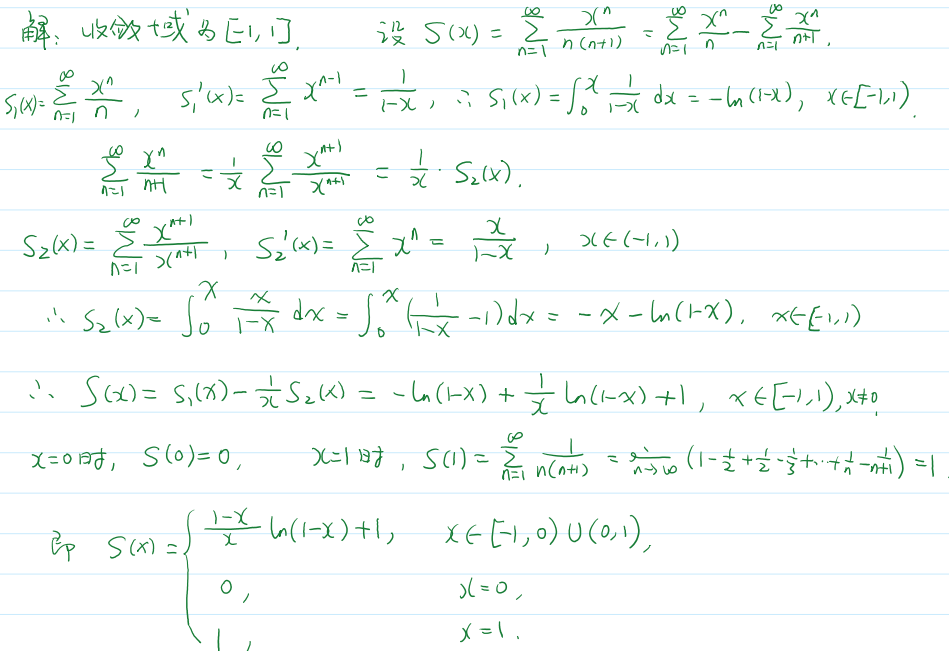 解: 收敛域为 [-1, 1]. 设 S(x) = \sum_{n=1}^{∞} \frac{x^n}{n(n+1)} = \sum_{n=1}^{∞} \frac{x^n}{n} - \sum_{n=1}^{∞} \frac{x^n}{n+1}.
S_1(x) = \sum_{n=1}^{∞} \frac{x^n}{n}, S_1'(x) = \sum_{n=1}^{∞} x^{n-1} = \frac{1}{1-x}, ∴ S_1(x) = \int_0^x \frac{1}{1-x} dx = -ln(1-x), x∈[-1,1).
\sum_{n=1}^{∞} \frac{x^n}{n+1} = \frac{1}{x} \sum_{n=1}^{∞} \frac{x^{n+1}}{x^{n+1}} = \frac{1}{x} · S_2(x).
S_2(x) = \sum_{n=1}^{∞} \frac{x^{n+1}}{x^{n+1}}, S_2'(x) = \sum_{n=1}^{∞} x^n = \frac{x}{1-x}, x∈(-1,1)
∴ S_2(x) = \int_0^x \frac{x}{1-x} dx = \int_0^x (\frac{1}{1-x} - 1) dx = -x - ln(1-x), x∈[-1,1)
∴ S(x) = S_1(x) - \frac{1}{x} S_2(x) = -ln(1-x) + \frac{1}{x} ln(1-x) + 1, x∈[-1,1), x≠0.
x=0时, S(0)=0, x=1时, S(1) = \sum_{n=1}^{∞} \frac{1}{n(n+1)} = \lim_{n→∞} (1 - \frac{1}{2} + \frac{1}{2} - \frac{1}{3} + ... + \frac{1}{n} - \frac{1}{n+1}) = 1
即 S(x) = { \frac{1-x}{x} ln(1-x) + 1, x∈[-1,0)∪(0,1),
0, x=0,
1, x=1.